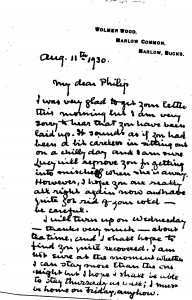 WOLMER WOOD,
MARLOW COMMON,
MARLOW, BUCKS.
Aug. 11th 1930.
My dear Philip
I was very glad to get your letter
this morning but I am very
sorry to hear that you have been
laid up. It sounds as if you had
been a bit careless in sitting out
on a chilly day and I am sure
Lucy will reprove you for getting
into mischief when she is away.
However, I hope you are really
all right again now and have
quite got rid of your
be careful.
I will turn up on Wednesday
— thanks very much — about
tea time, and I shall hope to
find you quite recovered. I am
not sure at the moment whether
I can stay more than the one
night but I hope I shall be able
to stay Thursday as well; I must
be home on Friday, anyhow.